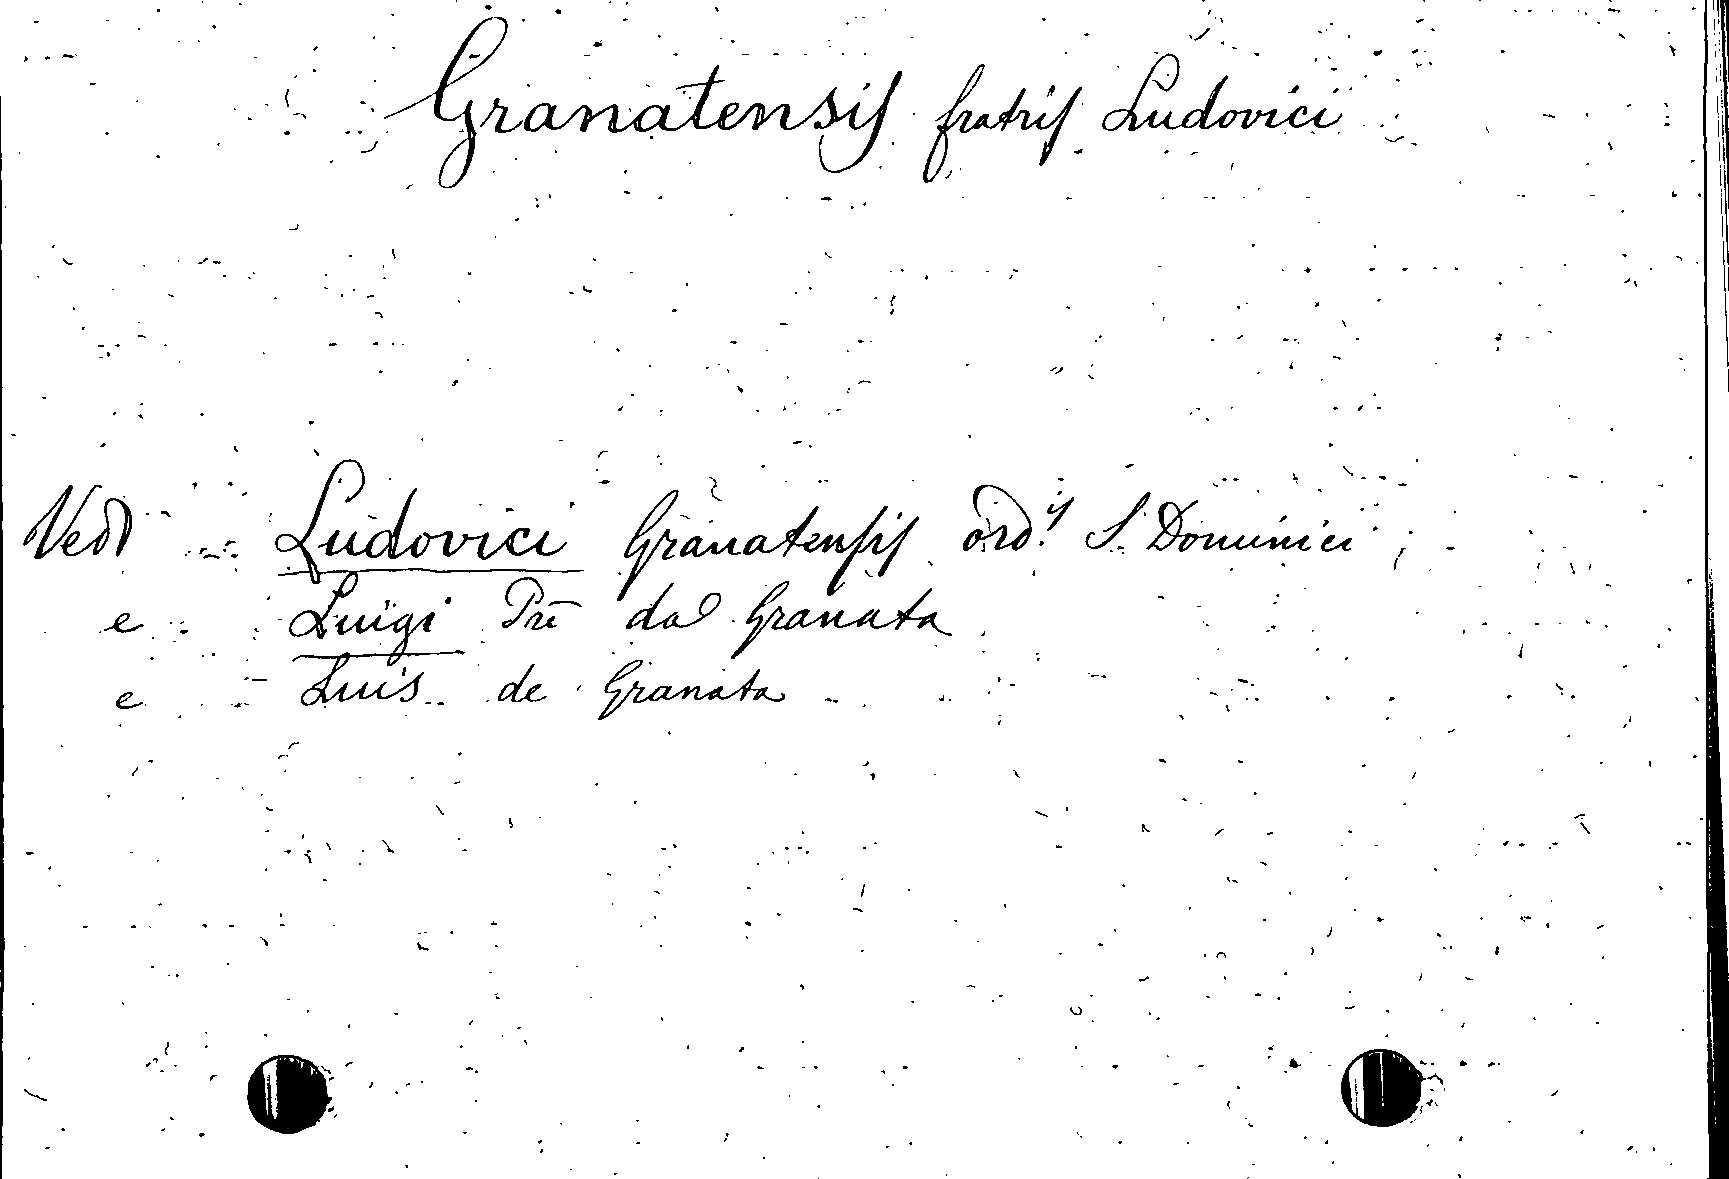 Granatensis fratris Ludovici
Ved Ludovici Granatensis ord.is S. Dominici ;
e Luigi Prē da Granata
e Luis de Granata